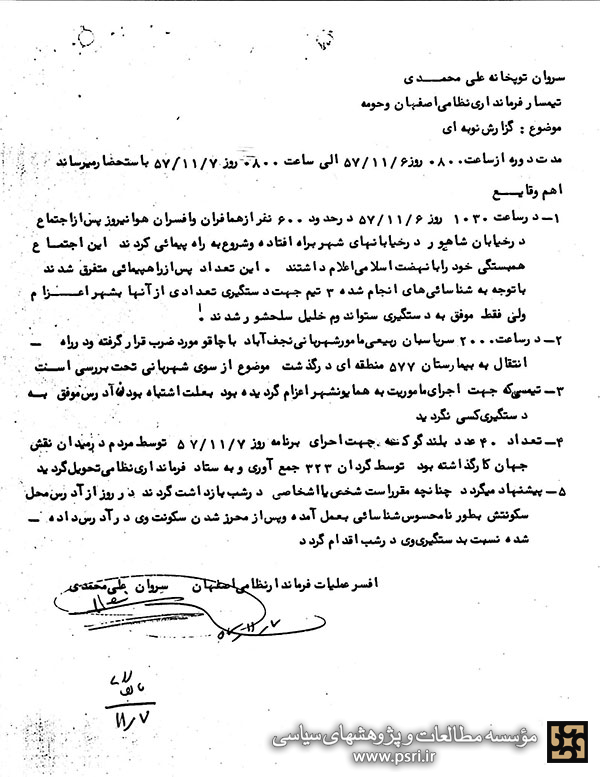 سروان توپخانه علی محمدی
تیمسار فرمانداری نظامی اصفهان وحومه
موضوع : گزارش نوبه ای
مدت دوره از ساعت ۰۸۰۰ روز ۵۷/۱۱/۶ الی ساعت ۰۸۰۰ روز ۵۷/۱۱/۷ باستحضار میرساند
اهم وقایع
۱- در ساعت ۱۰۳۰ روز ۵۷/۱۱/۶ در حدود ۶۰۰ نفر از همافران وافسران هوانیروز پس از اجتماع
در خیابان شاهپور در خیابانهای شهر براه افتاده وشروع به راه پیمائی کردند این اجتماع
همبستگی خود را با نهضت اسلامی اعلام داشتند . این تعداد پس از راهپیمائی متفرق شدند
با توجه به شناسائی های انجام شده ۳ تیم جهت دستگیری تعدادی از آنها بشهر اعزام
ولی فقط موفق به دستگیری ستواندوم خلیل سلحشور شدند .
۲- در ساعت ۲۰۰۰ سرپاسبان ربیعی مامور شهربانی نجف آباد با چاقو مورد ضرب قرار گرفته ودر راه -
انتقال به بیمارستان ۵۷۷ منطقه ای درگذشت موضوع از سوی شهربانی تحت بررسی است
۳- تیمی که جهت اجرای ماموریت به همایونشهر اعزام گردیده بود بعلت اشتباه بودن آدرس موفق به
دستگیری کسی نگردید
۴- تعداد ۴۰ عدد بلندگو که جهت اجرای برنامه روز ۵۷/۱۱/۷ توسط مردم در میدان نقش
جهان کار گذاشته بود توسط گردان ۳۲۳ جمع آوری و به ستاد فرمانداری نظامی تحویل گردید
۵- پیشنهاد میگردد چنانچه مقرر است شخص یا اشخاصی در شب بازداشت گردند در روز از آدرس محل
سکونتش بطور نامحسوس شناسائی بعمل آمده وپس از محرز شدن سکونت وی در آدرس داده -
شده نسبت بدستگیری وی در شب اقدام گردد
افسر عملیات فرماندار نظامی اصفهان سروان علی محمدی
۵۷/۱۱/۷
۱۱/۷
مؤسسه مطالعات و پژوهشهای سیاسی
www.psri.ir